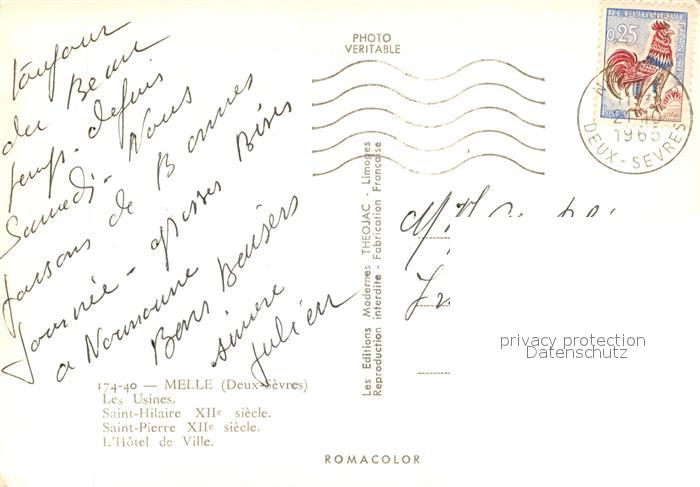 toujour
du Beau
temps. depuis
Samedi - Nous
passons de Bonnes
Journée - grosses Bises
a Nounoune
Bons Baisers
Julien
174-40 — MELLE (Deux-Sèvres)
Les Usines.
Saint-Hilaire XIIe siècle.
Saint-Pierre XIIe siècle.
L'Hôtel de Ville.
PHOTO
VERITABLE
Les Editions Modernes THEOJAC - Limoges
Reproduction interdite - Fabrication Française
ROMACOLOR
REPUBLIQUE FRANÇAISE
0,25
DEUX-SEVRES
privacy protection
Datenschutz